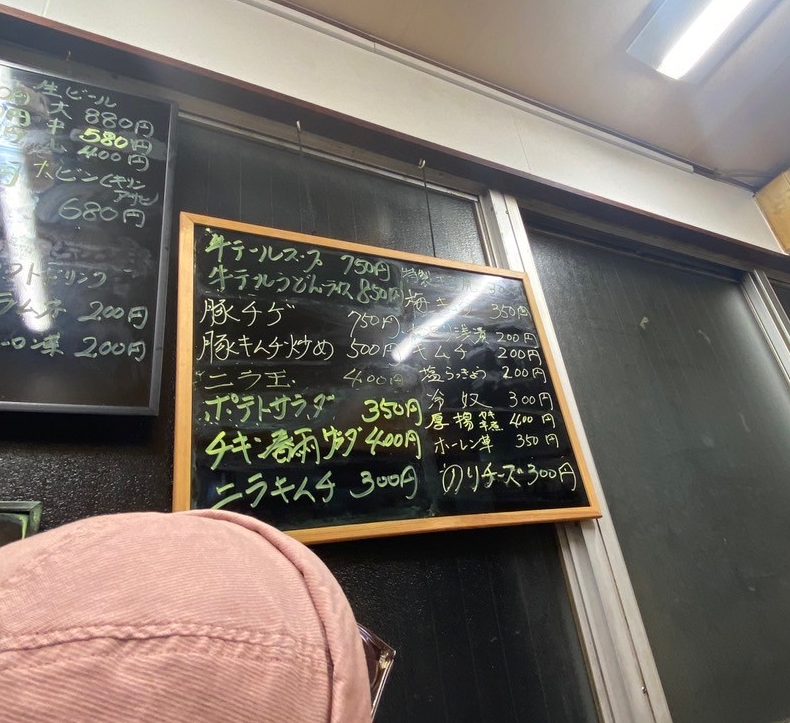 生ビール
大 880円
中 580円
小 400円
大ビン(キリン
アサヒ)
680円
リンク
200円
200円
牛テールスープ 750円
牛テールうどんラーメン 850円
豚チゲ 750円
豚キムチ炒め 500円
ニラ玉 400円
ポテトサラダ 350円
チキン春雨サラダ 400円
ニラキムチ 300円
特製
梅キ 350円
浅漬 200円
キムチ 200円
塩らっきょう 200円
冷奴 300円
厚揚 400円
ホーレン草 350円
のりチーズ 300円